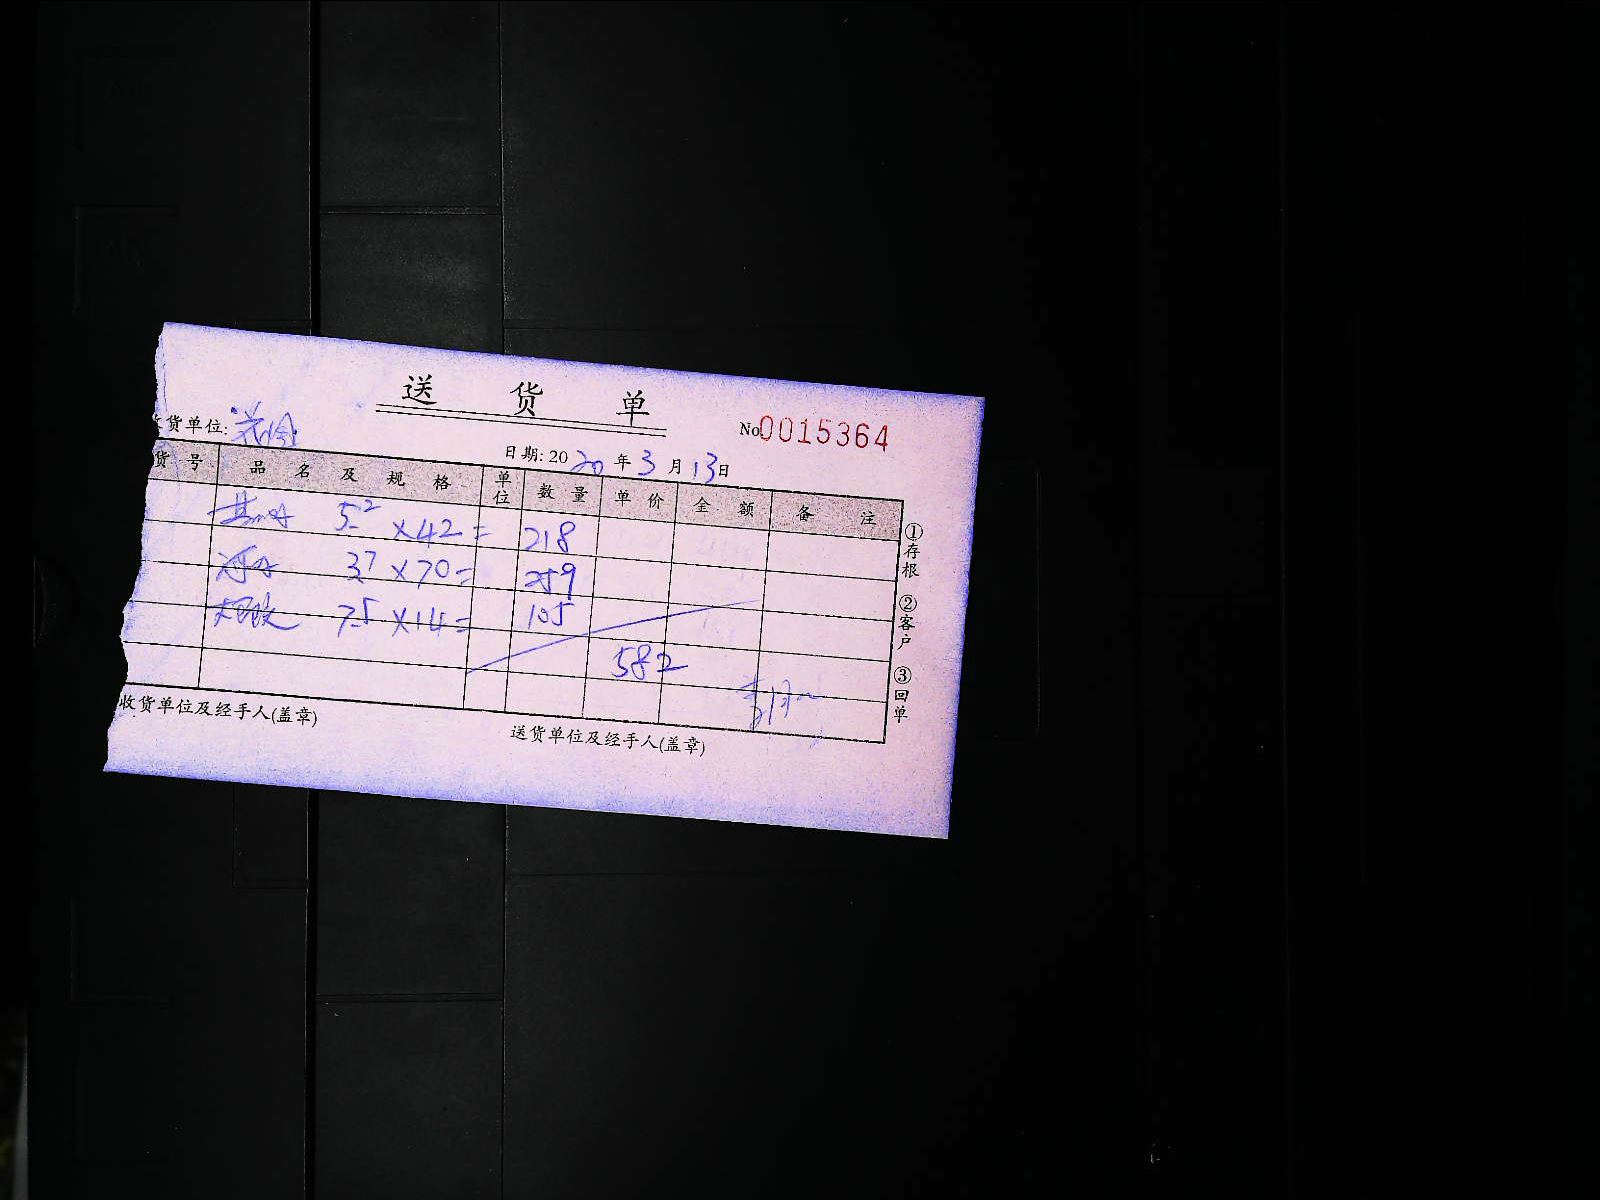 送 货 单
货单位:
No 0015364
日期: 2020 年 3 月 13 日
货 号 品 名 及 规 格 单位 数 量 单 价 金 额 备 注
5.2 ×42= 218
3.7 ×70= 259
7.5 ×14= 105
582
①存根
②客户
③回单
收货单位及经手人(盖章)
送货单位及经手人(盖章)